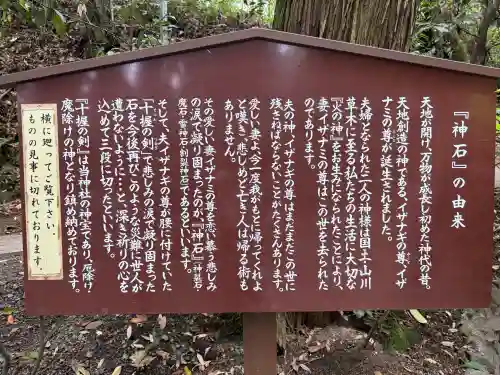 『神石』の由来
天地が開け、万物が成長し初めた神代の昔。
天地創造の神である、イザナギの尊、イザ
ナミの尊が誕生されました。
夫婦となられた二人の神様は国土・山川
草木に至る私たちの生活に大切な
『火の神』をお生みになられたことにより、
妻イザナミの尊はこの世を去られた
のであります。
夫の神、イザナギの尊はまだまだこの世に
残さねばならないことがたくさんあります。
愛しい妻よ、今一度我がもとに帰ってくれよ
と嘆き、悲しめど亡き人は帰る術も
ありません。
その愛しい妻、イザナミの尊を恋い慕う悲しみ
の涙が凝り固まったのが、『神石』
であるといいます。
そして、夫イザナギの尊が腰に付けていた
『十握の剣』で悲しみの涙が凝り固まった
石を今後再びこのような災難に世の人が
遭わないように…と、深き祈りの心を
込めて三段に切ったといいます。
『十握の剣』は当神社の神宝であり、厄除け・
魔除けの神となり鎮め納めております。
横に廻ってご覧下さい。
ものの見事に切れております。